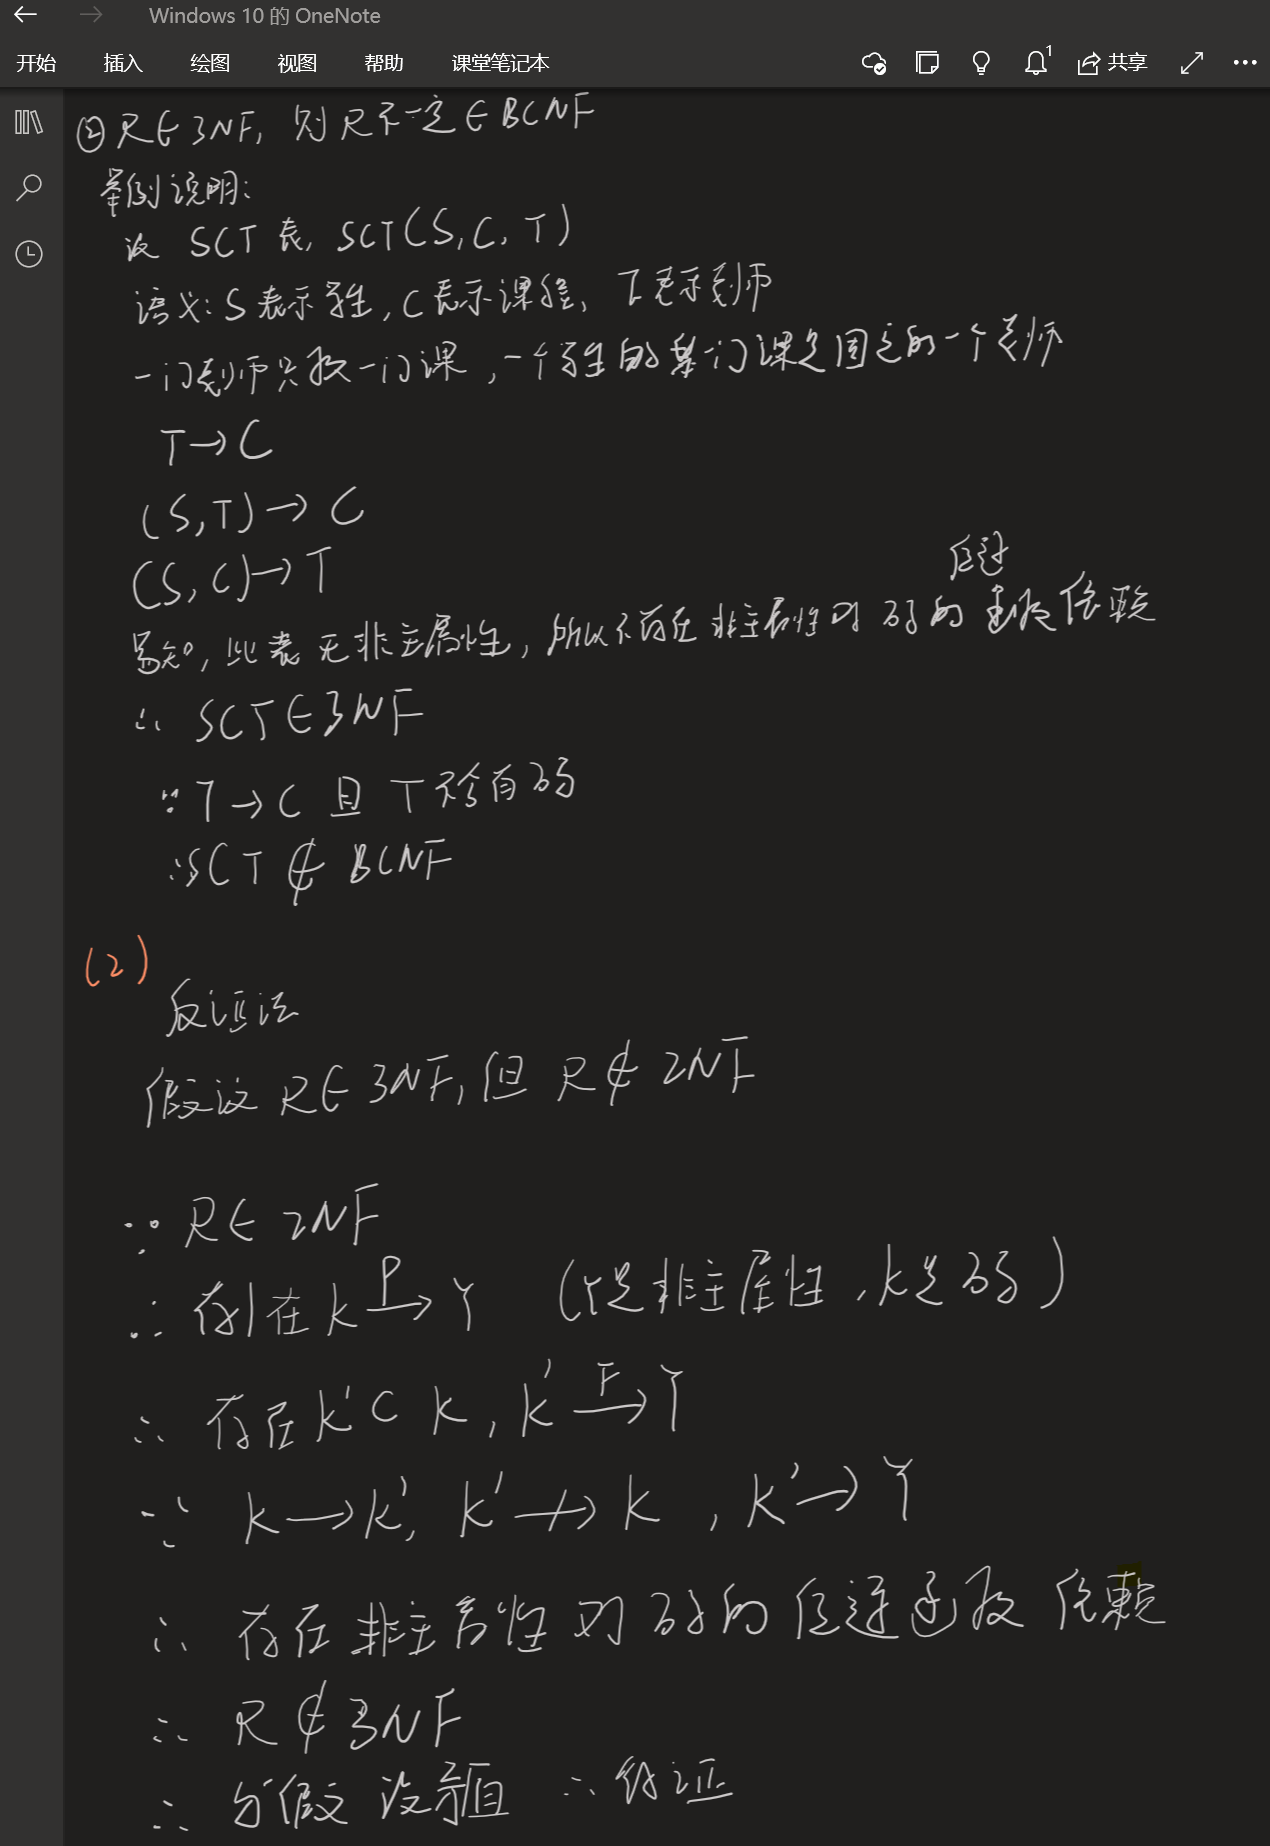 Windows 10 的 OneNote
开始 插入 绘图 视图 帮助 课堂笔记本 1 共享
② R∈3NF, 则 R不一定∈BCNF
举例说明:
设 SCT 表, SCT(S, C, T)
语义: S表示学生, C表示课程, T表示老师
一门老师只教一门课, 一个学生的某一门课是固定的一个老师
T→C
(S,T)→C
(S,C)→T
传递
易知, 此表无非主属性, 所以不存在非主属性对码的函数依赖
∴ SCT∈3NF
∵ T→C 且 T不含有码
∴ SCT∉BCNF
(2)
反证法
假设 R∈3NF, 但 R∉2NF
∵ R∈2NF
∴ 存在 K P→ Y (Y是非主属性, K是码)
∴ 存在K'⊂K, K' F→ Y
∵ K→K', K'↛K, K'→Y
∴ 存在非主属性对码的传递函数依赖
∴ R∉3NF
∴ 与假设矛盾 ∴得证